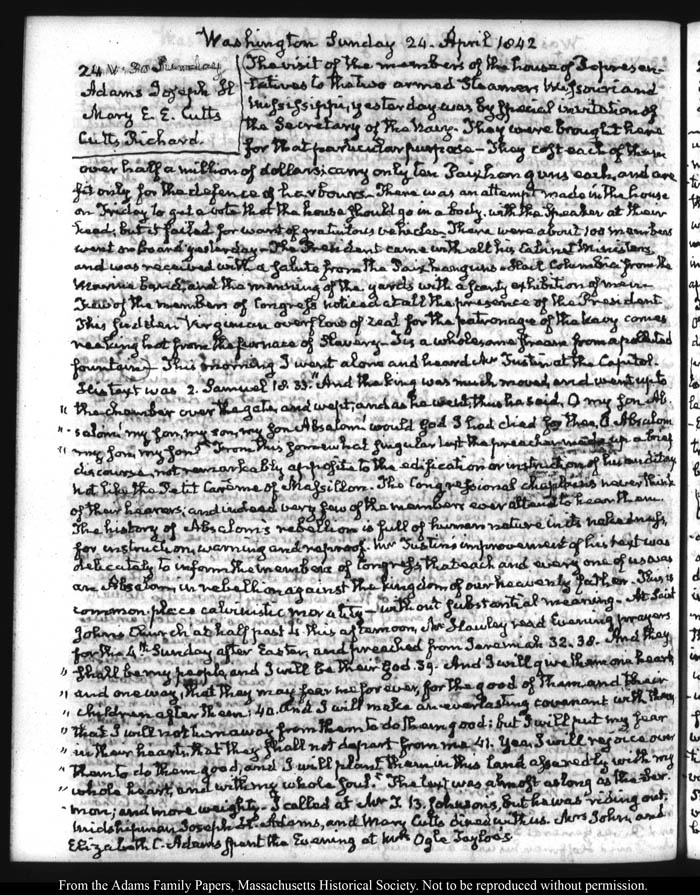 Washington Sunday 24. April 1842
24 V. 30 Sunday
Adams Joseph H
Mary E. E. Cutts
Cutts Richard.
The visit of the members of the house of Represen-
tatives to the two armed Steamers Missouri and
Mississippi, yesterday was by special invitation of
the Secretary of the Navy. They were brought here
for that particular purpose — They cost each of them
over half a million of dollars; carry only ten Paixhan guns each, and are
fit only for the defence of harbours. There was an attempt made in the house
on Friday to get a vote that the house should go in a body, with the Speaker at their
head, but it failed for want of gratuitous vehicles. There were about 100 members
went on board yesterday. The President came with all his Cabinet Ministers,
and was received with a salute from the Paixhan guns. Hail Columbia from the
Marine band, and the manning of the yards with a scanty exhibition of men.
Few of the members of Congress noticed at all the presence of the President
This sudden Virginian overflow of zeal for the patronage of the Navy comes
reeking hot from the furnace of Slavery. Tis a wholesome stream from a polluted
fountain) — This morning I went alone and heard Mr Tustin at the Capitol.
His text was 2. Samuel 18.33. "And the king was much moved, and went up to
" the chamber over the gate, and wept, and as he went, thus he said, O my son Ab-
" salom! my son, my son, my son Absalom! would God I had died for thee, O Absalom
" my son, my son!" From this somewhat singular text the preacher made up a brief
discourse, not remarkably apposite to the edification or instruction of his auditory
not like the Petit Carême of Massillon. The Congressional chaplains never think
of their hearers; and indeed very few of the members ever attend to hear them.
The history of Absalom's rebellion is full of human nature in its nakedness,
for instruction, warning and reproof. Mr Tustin's improvement of his text was
delicately to inform the members of Congress, that each and every one of us was
an Absalom, in rebellion against the kingdom of our heavenly father. This is
common-place calvinistic morality — without substantial meaning. At Saint
Johns Church at half past 4 this afternoon, Mr Hawley read Evening prayers
for the 4th Sunday after Easter, and preached from Jeremiah 32.38. And they
" shall be my people, and I will be their God 39. And I will give them one heart
" and one way, that they may fear me for ever, for the good of them, and their
" children after them: 40. And I will make an everlasting covenant with them
" that I will not turn away from them to do them good; but I will put my fear
" in their hearts, that they shall not depart from me. 41. Yea, I will rejoice over
" them to do them good, and I will plant them in this land assuredly, with my
" whole heart, and with my whole soul." The text was almost as long as the Ser-
mon, and more weighty. I called at Mr T. B. Johnson's, but he was riding out;
Midshipman Joseph H. Adams, and Mary Cutts dined with us. Mrs John, and
Elizabeth C. Adams spent the Evening at Mrs Ogle Tayloe's
From the Adams Family Papers, Massachusetts Historical Society. Not to be reproduced without permission.